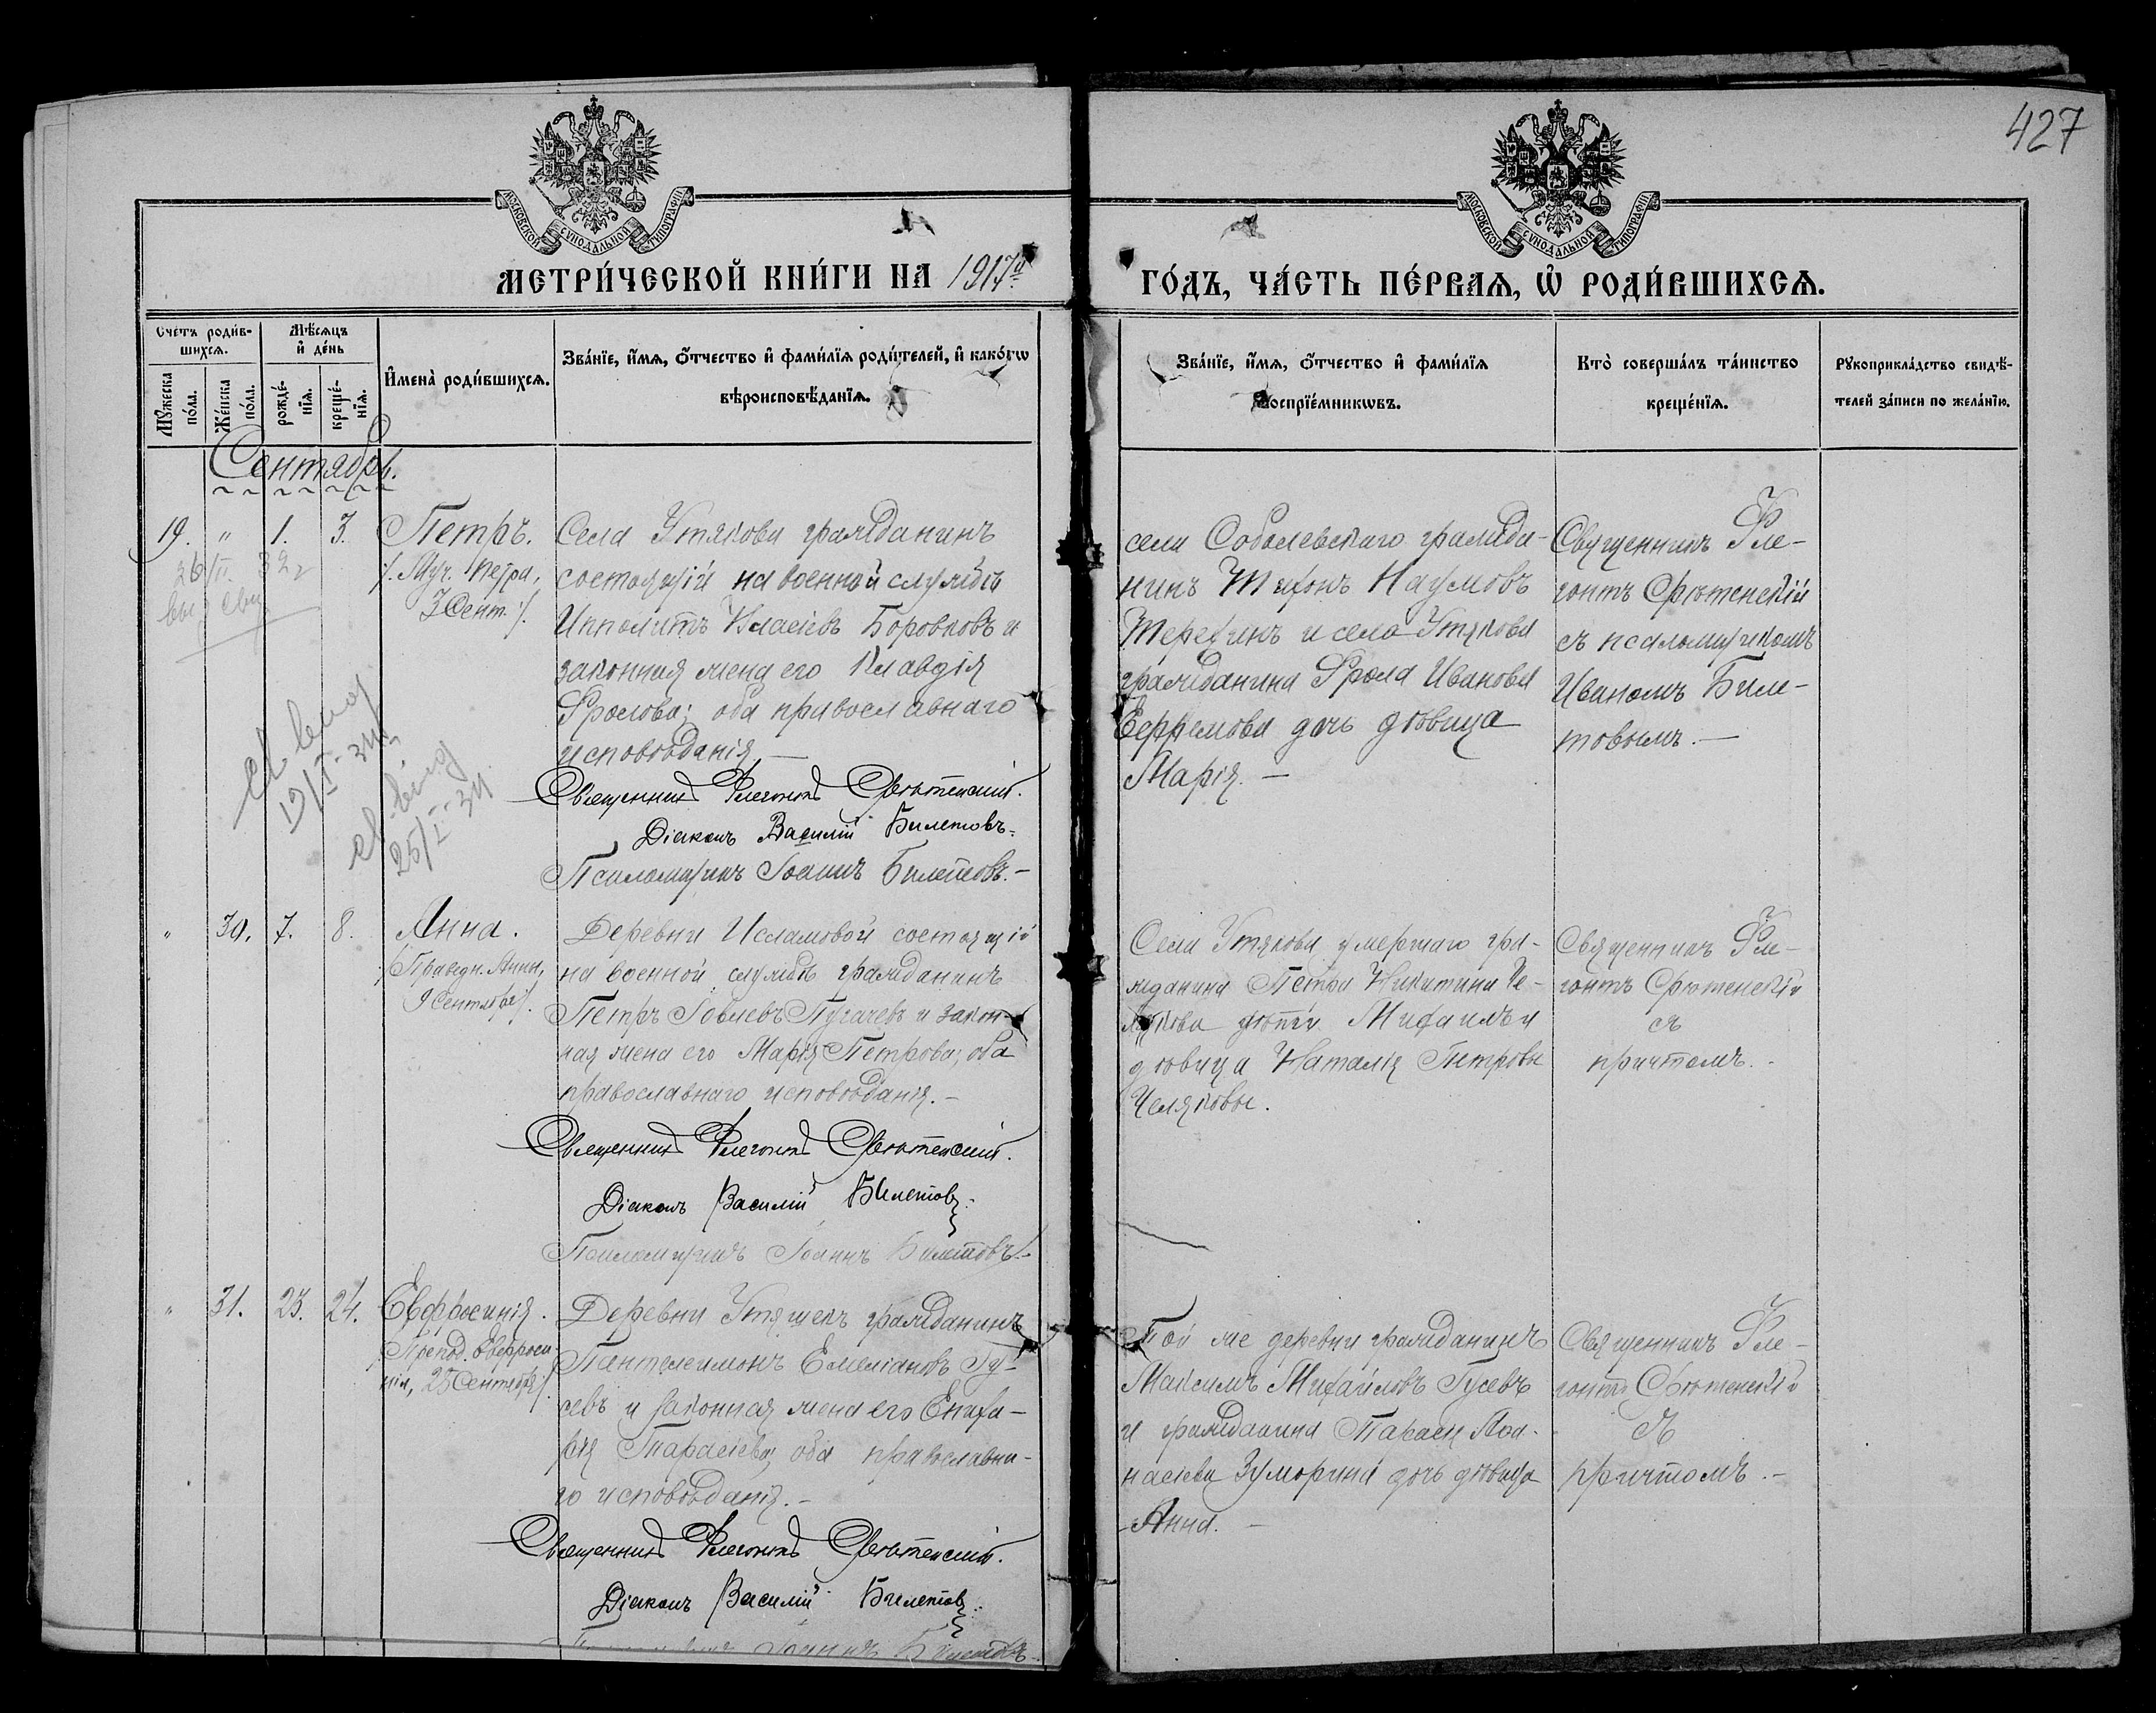 427
МОСКОВСКОЙ СѴНОДАЛЬНОЙ ТИПОГРАФІИ
МОСКОВСКОЙ СѴНОДАЛЬНОЙ ТИПОГРАФІИ
МЕТРИ́ЧЕСКОЙ КНИ́ГИ НА 1917й
ГО́ДЪ, ЧА́СТЬ ПЕ́РВАѦ, Ѽ РОДИ́ВШИХСѦ.
Сче́тъ роди́в-
шихсѧ.
Мѣ́сѧцъ
и҆ де́нь
И҆мена̀ роди́вшихсѧ.
Зва́нїе, и҆́мѧ, ѻ҆́тчество и҆ фами́лїѧ роди́телей, и҆ како́гѡ
вѣроисповѣ́данїѧ.
Мꙋ́жеска
по́ла.
Же́нска
по́ла.
рожде́-
нїѧ.
креще́-
нїѧ.
Зва́нїе, и҆́мѧ, ѻ҆́тчество и҆ фами́лїѧ
воспрїе́мникѡвъ.
Кто̀ соверша́лъ та́инство
креще́нїѧ.
Рꙋкоприкла́дство свидѣ́-
телей за́писи по жела́нїю.
Сентябрь.
19. " 1. 3. Петръ.
/. Муч. Петра,
3 Сент. /.
Села Утякова гражданинъ
состоящій на военной службѣ
Ипполитъ Власіевъ Боровковъ и
законная жена его Клавдія
Фролова; оба православнаго
исповѣданія. —
Священникъ Флегонтъ Срѣтенскій.
Діаконъ Василій Билетовъ.
Псаломщикъ Іоаннъ Билетовъ. —
села Соболевскаго гражда-
нинъ Тихонъ Наумовъ
Терехинъ и села Утякова
гражданина Фрола Иванова
Ефремова дочь дѣвица
Марія. —
Священникъ Фле-
гонтъ Срѣтенскій
съ псаломщикомъ
Иваномъ Биле-
товымъ. —
19/I - 34
25/I - 34
" 30. 7. 8. Анна.
/Праведн. Анны,
9 Сентября/.
Деревни Исламовой состоящій
на военной службѣ гражданинъ
Петръ Іовлевъ Пугачевъ и закон-
ная жена его Марія Петрова; оба
православнаго исповѣданія. —
Священникъ Флегонтъ Срѣтенскій.
Діаконъ Василій Билетовъ.
Псаломщикъ Іоаннъ Билетовъ. —
Села Утякова умершаго гра-
жданина Петра Никитина Че-
лякова дѣти Михаилъ и
дѣвица Наталія Петровы
Челяковы.
Священникъ Фле-
гонтъ Срѣтенскій
съ
причтомъ. -
" 31. 23. 24. Евфросинія.
/Препод. Евфроси
ніи, 25 Сентября/.
Деревни Утяшекъ гражданинъ
Пантелеимонъ Емеліановъ Гу-
севъ и законная жена его Епиха-
рія Тарасіева; оба православна-
го исповѣданія. —
Священникъ Флегонтъ Срѣтенскій.
Діаконъ Василій Билетовъ.
Іоаннъ Билетовъ.
Той же деревни гражданинъ
Максимъ Михайловъ Гусевъ
и гражданина Тарасія Аѳа-
насіева Зуморина дочь дѣвица
Анна. —
Священникъ Фле-
гонтъ Срѣтенскій
съ
причтомъ. —